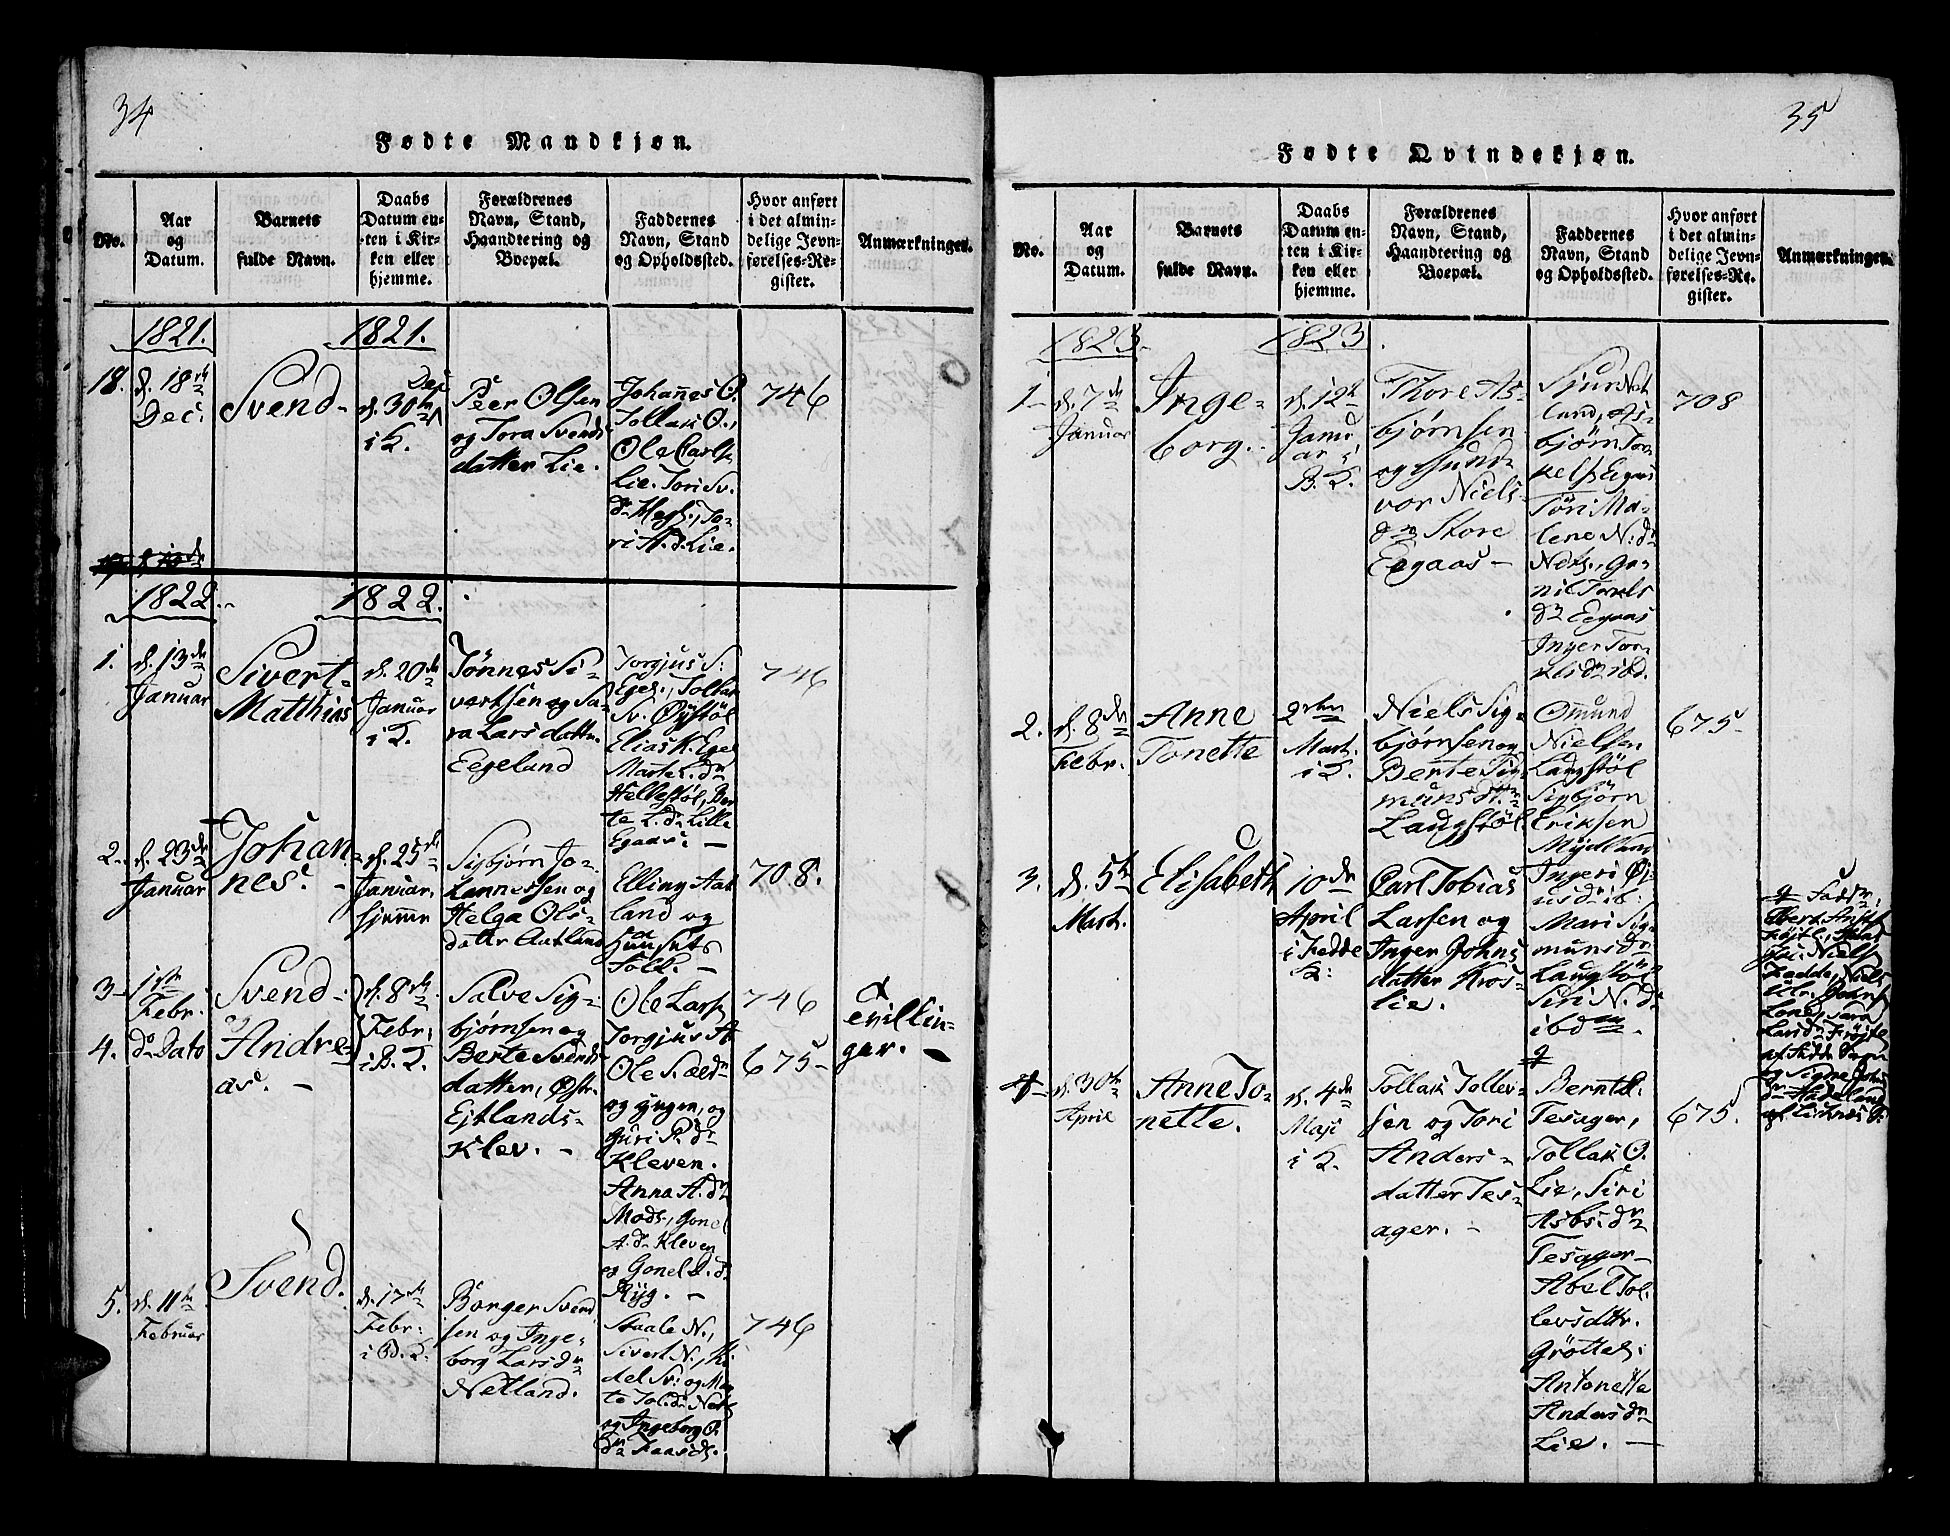 34
Fødte Mandkjøn.
No.
Aar
og
Datum.
Barnets
fulde Navn.
Daabs
Datum en-
ten i Kir-
ken eller
hjemme.
Forældrenes
Navn, Stand,
Haandtering og
Boepæl.
Faddernes
Navn, Stand
og Opholdssted.
Hvor anført
i det almin-
delige Jevn-
førelses-Re-
gister.
Anmærkninger.
1821.
1821.
18.
d. 18de
Dec.
Svend
Dec
d. 30te
i K.
Peer Olsen
og Tora Svends
datter Lie.
Johanes O.
Tollak O.,
Ole Carls
Lie. Tori Sv.
ri A.d. Lie.
746
1822.
1822.
1.
d. 13de
Januar
Sivert
Matthias
d. 20de
Januar
i K.
Tönnes Si-
vertsen og Sa-
ra Lars datter
Eegeland
Torgjus S:
Egel., Tollak
Sv. Øystöl
Elias K. Egel
Marte L. dr
Helle stöl, Ber
te L. dr Lille
Egaas: —
746
2.
d. 23de
Januar
Johan-
nes. -
d. 25de
Januar.
hjemme
Sigbjørn Jo-
hannessen og
Helga Ols-
datter Aatland
Elling Aat
land og
Huusets
Folk. —
708.
3-
1ste
Febr.
Svend
og
4.
do Dato
Andre-
as. -
d. 8de
Febr:
i B. K.
Salve Sig-
bjørnsen og
Berte Svends
datter, Østr.
Ejtlands-
Klev. -
Ole Lars
Torgjus A
Ole S.
og yngre, og
Guri P. dr
Kleven.
Anna A. dr
Mods., Gonel
A. dr Kleven
og Gonel P. dr
Ryg. —
746
675-
Tvillin-
ger.
5.
d. 11te
Februar
Svend.
d. 17de
Febr.
Børger Svend
sen og Inge-
borg Lars dr
Netland.
Staale N.,
Sivert N.,
del Sv: og Mar
og Ingeborg O.
746
35
Fødte Qvindekjøn.
No.
Aar
og
Datum.
Barnets
fulde Navn.
Daabs
Datum en-
ten i Kir-
ken eller
hjemme.
Forældrenes
Navn, Stand,
Haandtering og
Boepæl.
Faddernes
Navn, Stand
og Opholdssted.
Hvor anført
i det almin-
delige Jevn-
førelses-Re-
gister.
Anmærkninger.
1823.
1823.
1-
d. 7de
Januar
Inge-
borg.
d. 12te
Janu
ar i
B. K.
Thore As-
bjørnsen
og Gund-
vor Niels-
dr Store
Egaas -
Sjur Net
land, As-
bjørn Tor-
kels Egaas
Töri Ma-
lene N: dr
Netl., Go-
nil Torkels
dr Egaas
Inger Tor-
kels dr ibd.
708
2.
d. 8de
Febr.
Anne
Tonette
2den
Mart.
i K.
Niels Sig-
bjørnsen og
Berte Sig
muns dtr
Laugstöl.
Omund
Nielsen
Laugstöl
Sigbjörn
Eriksen
Mydland
Ingeri
Mari Sig-
muns dr
Laugstöl
Siri N. dr
ibdm.
675-
3.
d. 5te
Mart.
Elisabeth
10de
April
i Fedde
K:
Carl Tobias
Larsen og
Inger Johns
datter Kros-
lie.
4-
d. 30te
April
Anne To-
nette.
d. 4de
Maji
i K.
Tollak Tollev-
sen og Tori
Anders-
datter Tes-
ager. -
Bernt L.
Tesager,
Tollak O.
Lie, Siri
Asbs: dr
Tesager
Abel Tol-
levs dtr.
Grøttel:
Antonette
Anders dr
Lie. —
675.